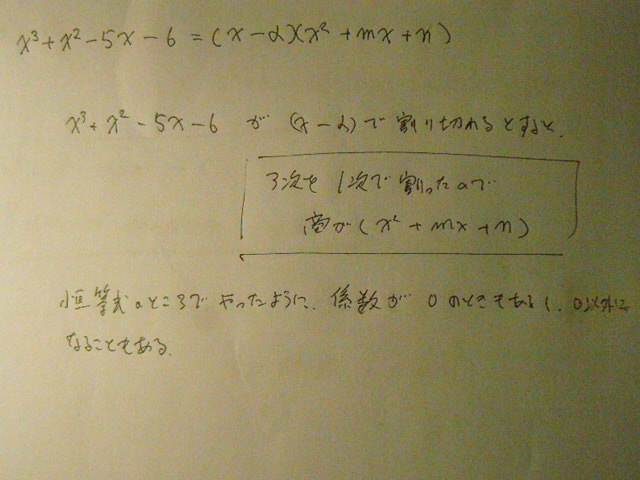 x³+x²-5x-6=(x-α)(x²+mx+n)
x³+x²-5x-6 が (x-α)で割り切れるとすると、
3次を1次で割ったので
商が(x²+mx+n)
恒等式のところでやったように、係数が0のときもあるし、0以外に
なることもある。